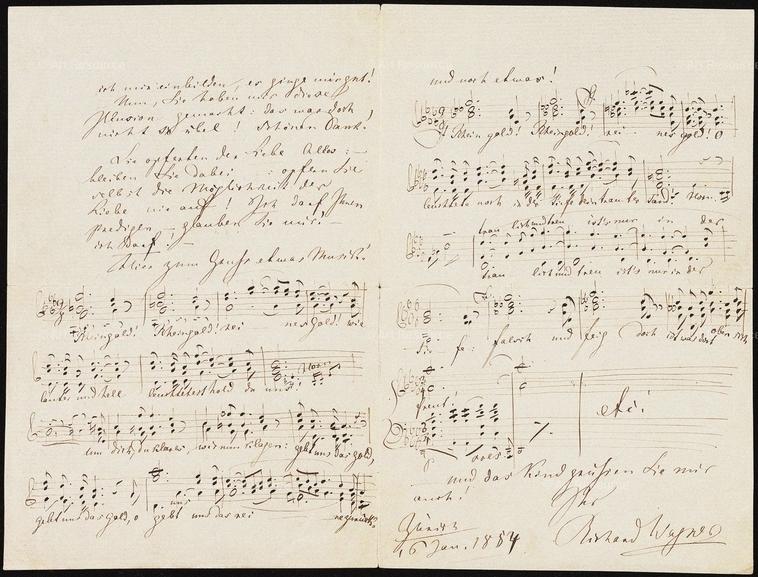 ich mir einbilden, es ginge mirgut!
Nun, Sie haben mir diese
Illusion gemacht: das war doch
nicht so übel! Schönen Dank!
Sie opferten der Liebe Alles: —
bleiben Sie dabei : opfern Sie
selbst die Möglichkeit der
Liebe nie auf! Ich darf Ihnen
predigen — glauben Sie mir:
ich darf —
Hier zum etwas Musik!
Rheingold! Rheingold! rei nes Gold! wie
lauter und hell leuchtetest hold du uns!
um dich, du klares, wir nun klagen: gebt uns das Gold,
gebt uns das Gold, o gebt uns das rei ne zurück!
und noch etwas!
Rheingold! Rheingold! rei nes gold! O
leuchtete noch in der Tiefe dein lautrer Tand!
trau lich und treu ist's nur in der
trau lich und treu ist's nur in der
Tie fe: falsch und feig doch ist was dort oben sich
freut!
etc:
und das Kind grüssen Sie mir
auch!
Ihr
Richard Wagner
Zürich
16 Jan. 1854
Art Resource